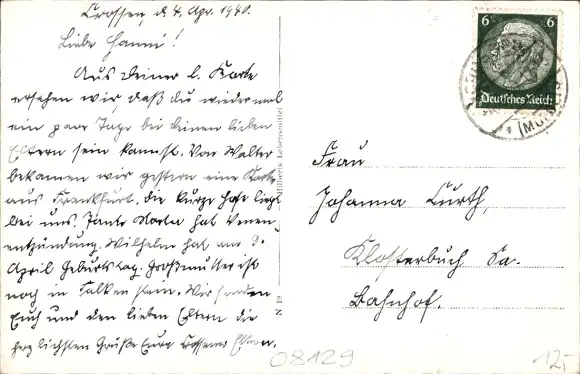 Crossen, d. 4. Apr. 1940.
Liebe Hanni!
Aus Deiner l. Karte
ersehen wir daß du wieder mal
ein paar Tage bei deinen lieben
Eltern sein kannst. Von Walter
bekamen wir gestern eine Karte
aus Frankfurt. die kurze Hose liegt
bei uns. Tante Marta hat Venen-
entzündung. Wilhelm hat am 9.
April Geburtstag. Großmutter ist
noch in Falkenstein. Wir senden
Euch und den lieben Eltern die
herzlichsten Grüße Eure Crossener Eltern.
N 19
6 6
Deutsches Reich
Frau
Johanna Curth,
Klosterbuch Sa.
Bahnhof.
08129
12,-